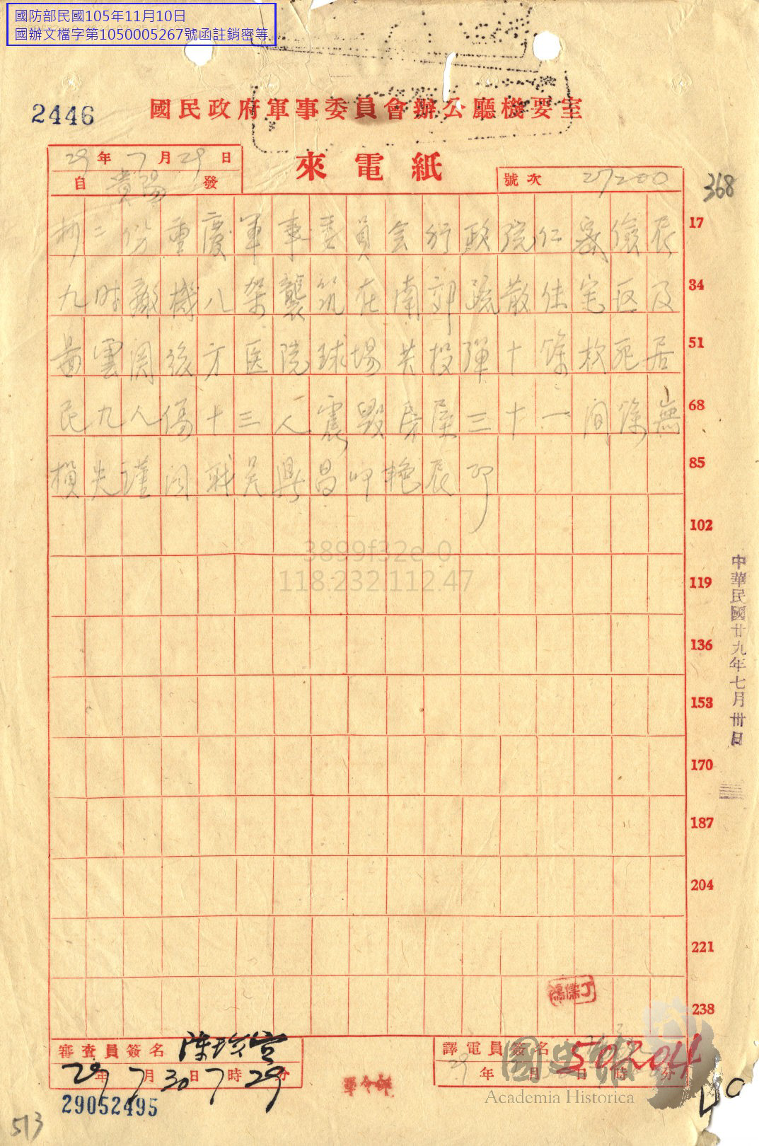 國防部民國105年11月10日
國辦文檔字第1050005267號函註銷密等
2446
國民政府軍事委員會辦公廳機要室
29年7月29日
自貴陽發
來電紙
號次 27200
368
抄二份重慶軍事委員会行政院仁密儉辰 17
九时敵機八架襲筑在南郊疏散住宅区及 34
黃雲関後方医院球場共投彈十餘枚死居 51
民九人傷十三人震毀房屋三十一間餘無 68
損失謹聞職吳鼎昌叩艳辰印 85
102
119
136
153
170
187
204
221
238
3899f32e-0
118.232.112.47
中華民國廿九年七月卅日
審查員簽名
29年7月30日7時29分
29052495
譯電員簽名
年 月 日 時 分
50204
國史館
Academia Historica
513